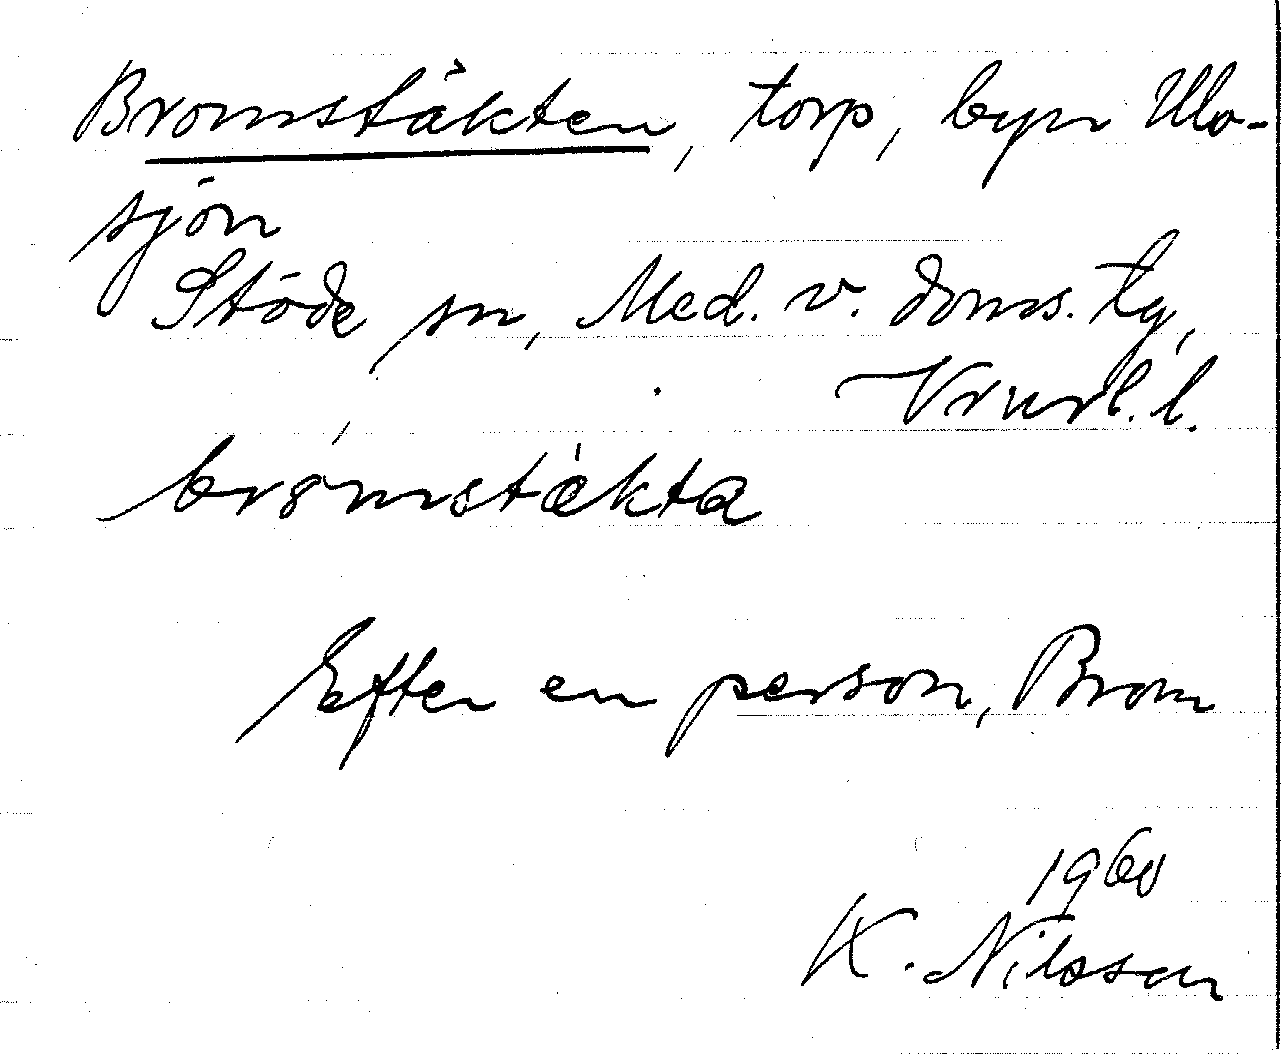 Bromstäkten, torp, byn Ulo-
sjön
Stöde sn, Med. v. doms. tg,
Vnorl. l.
brømstækta
Efter en person, Brom
1960
K. Nilsson